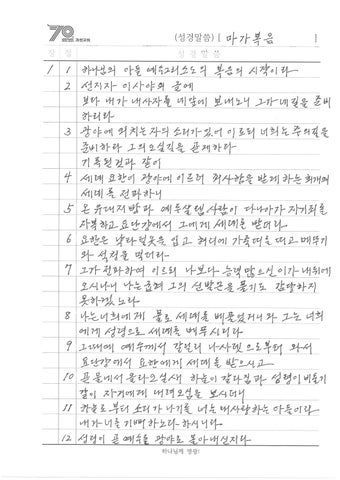 70
(성경말씀) [ 마가복음 ]
장 절 성 경 말 씀
1 1 하나님의 아들 예수그리스도의 복음의 시작이라
2 선지자 이사야의 글에
보라 내가 내사자를 네앞에 보내노니 그가 네길을 준비
하리라
3 광야에 외치는자의 소리가 있어 이르되 너희는 주의길을
준비하라 그의오실길을 곧게하라
기록된것과 같이
4 세례 요한이 광야에 이르러 죄사함을 받게 하는 회개의
세례를 전파하니
5 온 유대지방과 예루살렘사람이 다나아가 자기죄를
자복하고 요단강에서 그에게 세례를 받더라
6 요한은 낙타털옷을 입고 허리에 가죽띠를 띠고 메뚜기
와 석청을 먹더라
7 그가 전파하여 이르되 나보다 능력 많으신 이가 내뒤에
오시나니 나는 굽혀 그의 신발끈을 풀기도 감당하지
못하겠노라
8 나는 너희에게 물로 세례를 베풀었거니와 그는 너희
에게 성령으로 세례를 베푸시리라
9 그때에 예수께서 갈릴리 나사렛으로부터 와서
요단강에서 요한에게 세례를 받으시고
10 곧 물에서 올라오실새 하늘이 갈라짐과 성령이 비둘기
같이 자기에게 내려오심을 보시더니
11 하늘로부터 소리가 나기를 너는 내사랑하는 아들이라
내가 너를 기뻐하노라 하시니라
12 성령이 곧 예수를 광야로 몰아내신지라
하나님께 영광!